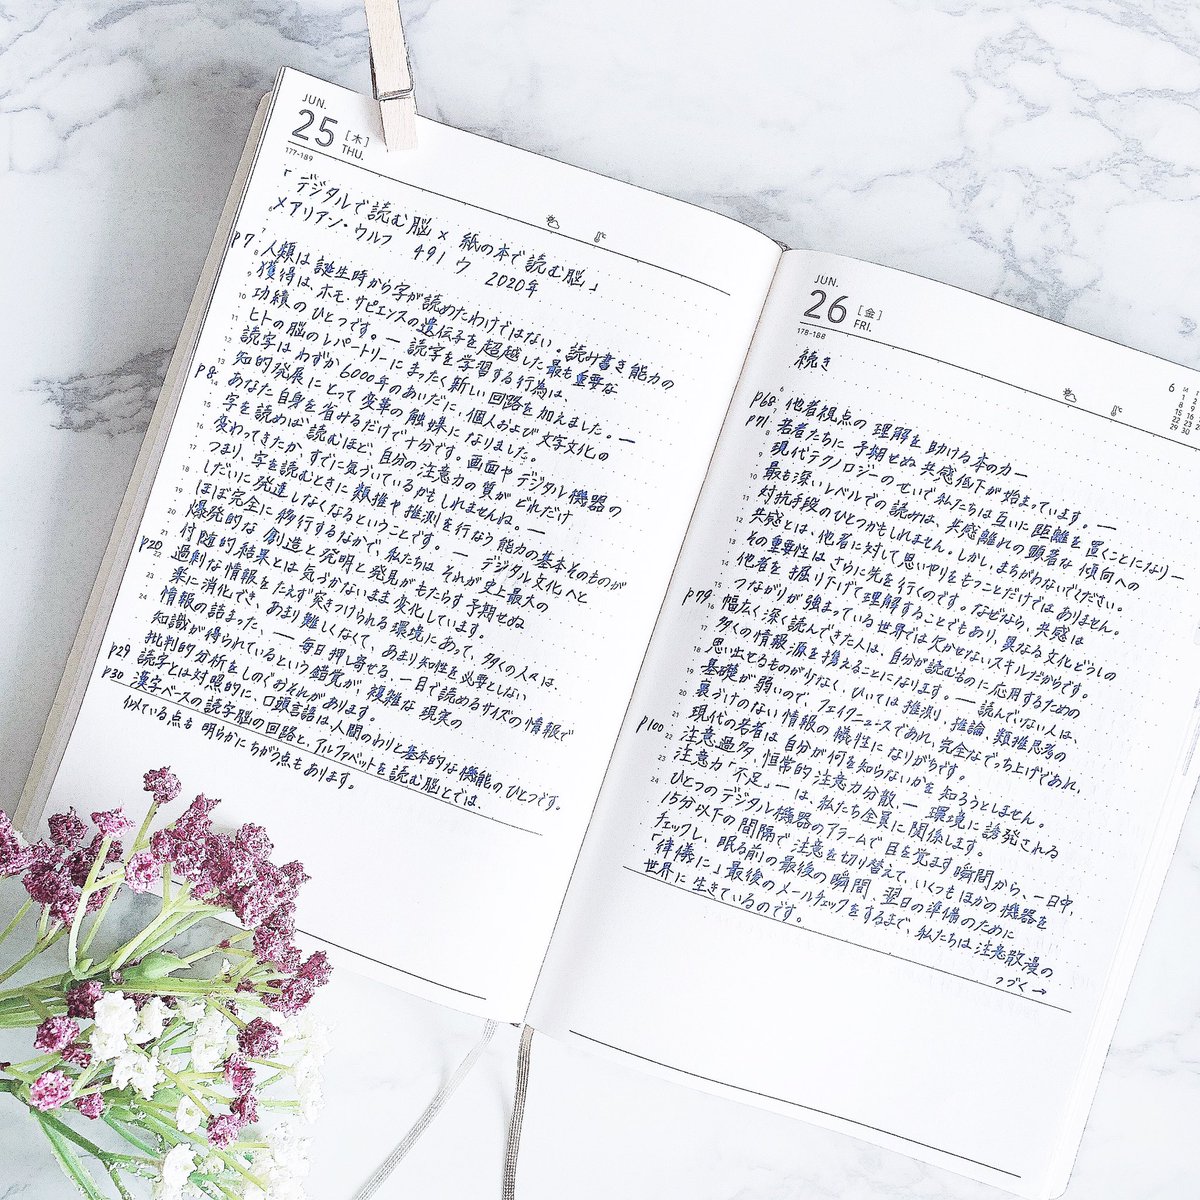 JUN.
25 [木]
THU.
177-189
「デジタルで読む脳 × 紙の本で読む脳」
メアリアン・ウルフ 491 ウ 2020年
p7 人類は誕生時から字が読めたわけではない。読み書き能力の
獲得は、ホモ・サピエンスの遺伝子を超越した最も重要な
功績のひとつです。― 読字を学習する行為は、
ヒトの脳のレパートリーにまったく新しい回路を加えました。―
読字はわずか6000年のあいだに、個人および文字文化の
知的発展にとって変革の触媒になりました。
p8 あなた自身を省みるだけで十分です。画面やデジタル機器の
字を読めば読むほど、自分の注意力の質がどれだけ
変わってきたか、すでに気づいているかもしれませんね。―
つまり、字を読むときに類推や推測を行なう能力の基本そのものが
しだいに発達しなくなるということです。― デジタル文化へと
ほぼ完全に移行するなかで、私たちはそれが史上最大の
爆発的な創造と発明と発見がもたらす予期せぬ
付随的結果とは気づかないまま変化しています。
p20 過剰な情報をたえず突きつけられる環境にあって、多くの人々は、
楽に消化でき、あまり難しくなくて、あまり知性を必要としない
情報の詰まった、― 毎日押し寄せる、一口で読めるサイズの情報で
知識が得られているという錯覚が、複雑な現実の
批判的分析をしのぐおそれがあります。
p29 読字とは対照的に、口頭言語は人間のわりと基本的な機能のひとつです。
p30 漢字ベースの読字脳の回路と、アルファベットを読む脳とでは、
似ている点も明らかにちがう点もあります。
JUN.
26 [金]
FRI.
178-188
続き
p68 他者視点の理解を助ける本の力―
p71 若者たちに予期せぬ共感低下が始まっています。―
現代テクノロジーのせいで私たちは互いに距離を置くことになり―
最も深いレベルでの読みは、共感離れの顕著な傾向への
対抗手段のひとつかもしれません。しかし、まちがわないでください。
共感とは、他者に対して思いやりをもつことだけではありません。
その重要性は、さらに先を行くのです。なぜなら、共感は
他者を掘り下げて理解することでもあり、異なる文化どうしの
つながりが強まっている世界では欠かせないスキルだからです。
p79 幅広く深く読んできた人は、自分が読むものに応用するための
多くの情報源を携えることになります。― 読んでいない人は、
思い出せるものがなく、ひいては推測、推論、類推思考の
基礎が弱いので、フェイクニュースであれ、完全なでっち上げであれ、
裏づけのない情報の犠牲になりがちです。
現代の若者は自分が何を知らないかを知ろうとしません。
p100 注意過多、恒常的注意力分散、― 環境に誘発される
注意力「不足」― は、私たち全員に関係します。
ひとつのデジタル機器のアラームで目を覚ます瞬間から、一日中、
15分以下の間隔で注意を切り替えて、いくつもほかの機器を
チェックし、眠る前の最後の瞬間、翌日の準備のために
「律儀に」最後のメールチェックをするまで、私たちは注意散漫の
世界に生きているのです。
つづく→